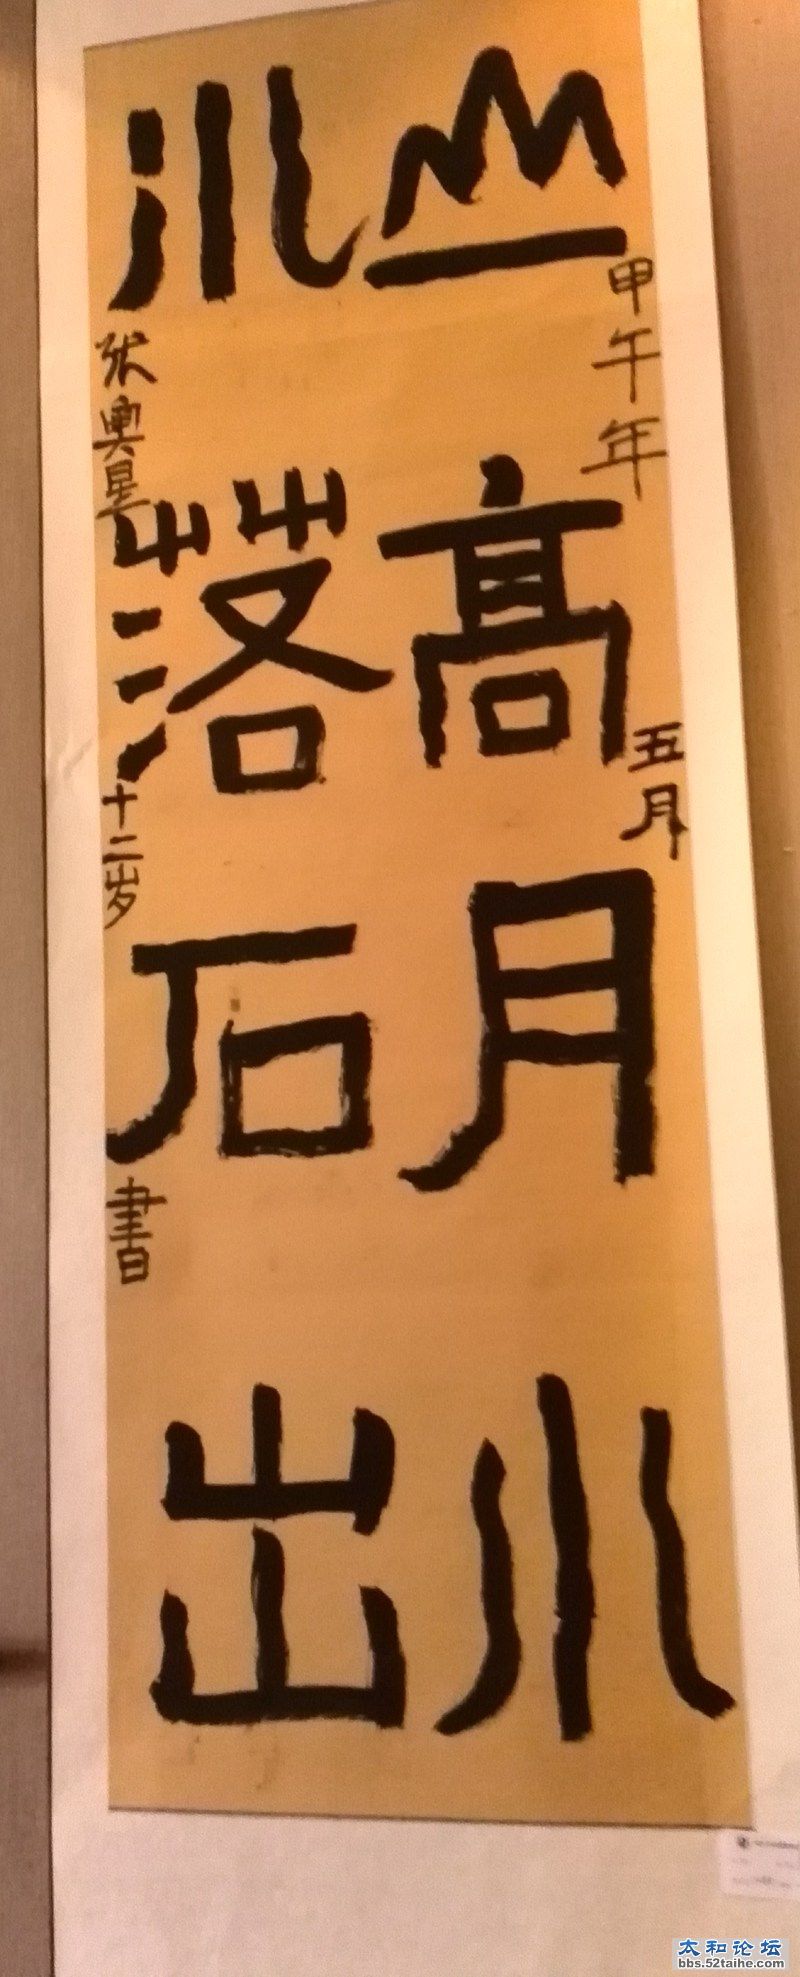 山高月小
水落石出
甲午年五月
张奥星十二岁書
太和论坛
bbs.52taihe.com